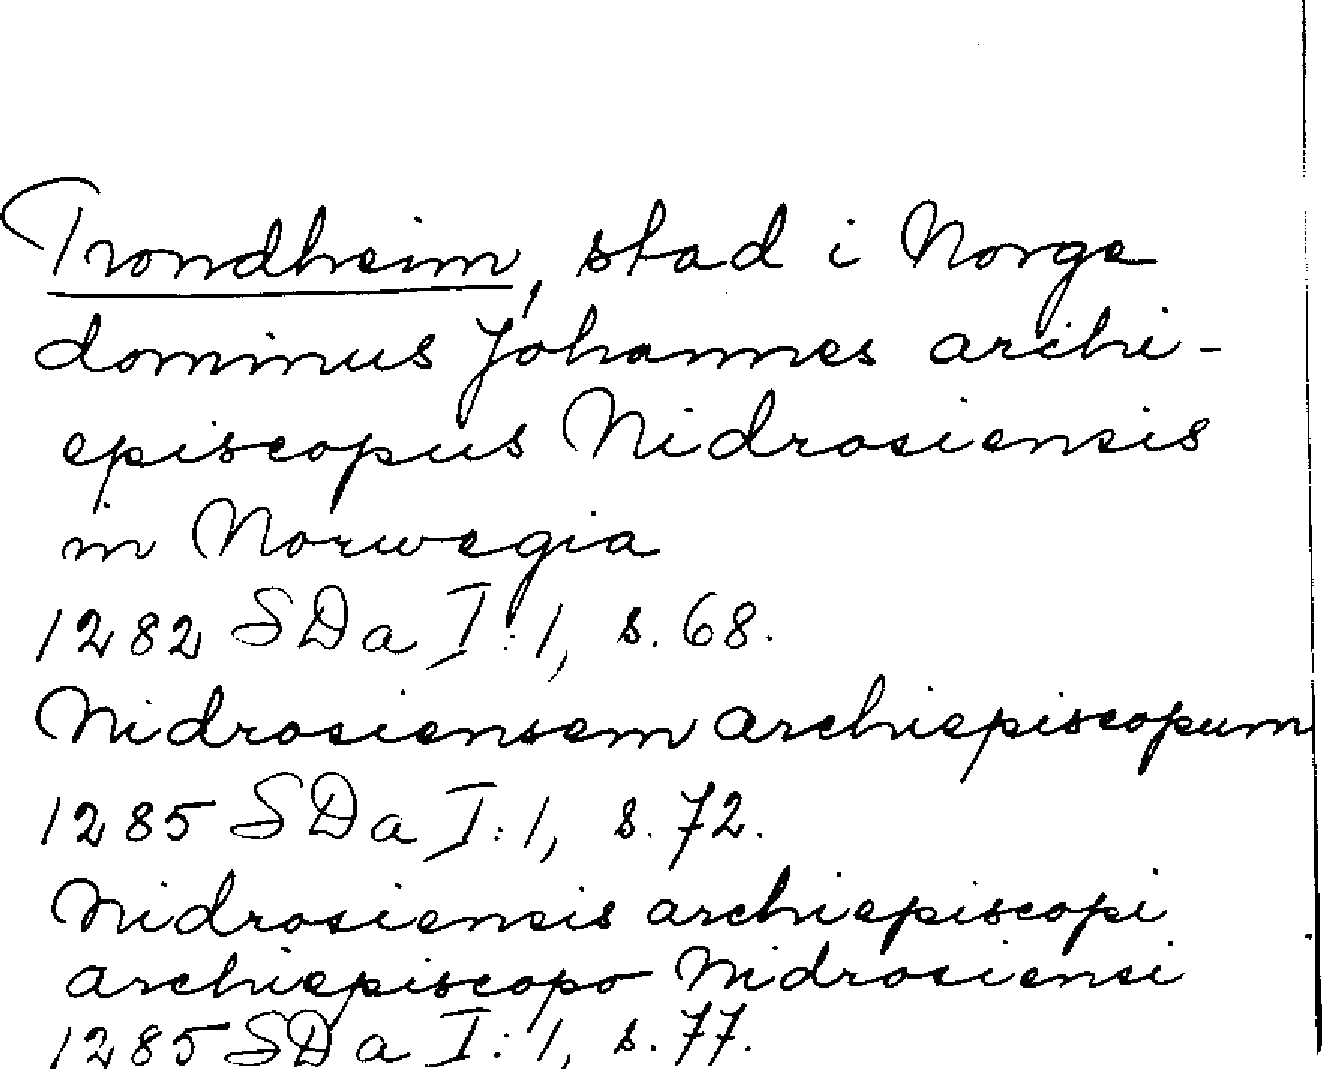 Trondheim, stad i Norge
dominus Johannes archi-
episcopus Nidrosiensis
in Norwegia
1282 SDa I:1, s. 68.
Nidrosiensem archiepiscopum
1285 SDa I:1, s. 72.
Nidrosiensis archiepiscopi
archiepiscopo Nidrosiensi
1285 SDa I:1, s. 77.